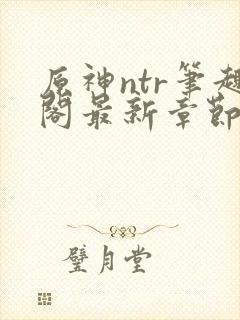 原神ntr筆趣
閣最新章節
璧月堂